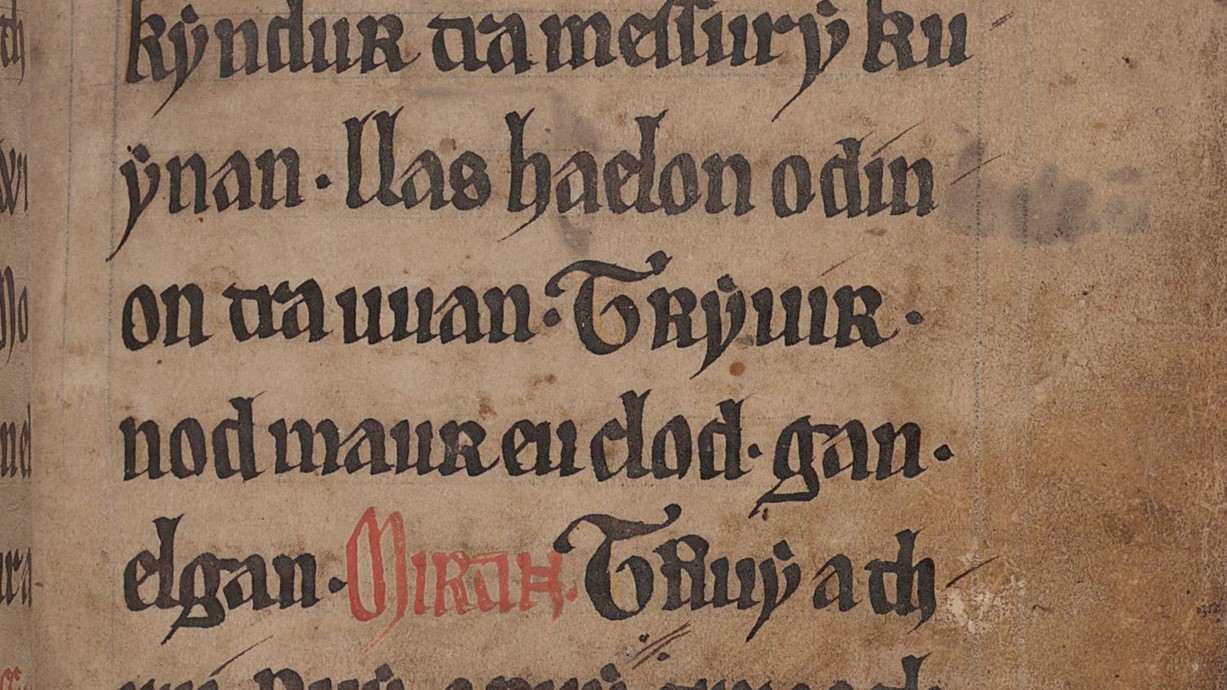 kẏndur tra messurẏ kẏ
ẏnan. llas haelon o din
on tra uuan. Trẏwir.
nod maur eu clod. gan.
elgan. Mirtḣ. Truẏ a th